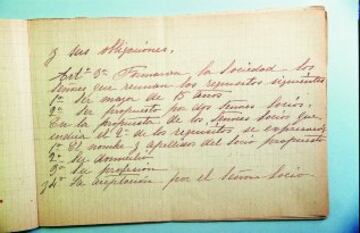 y sus obligaciones.
Artº 3º Formaran la Sociedad los
Señores que reunan los requisitos siguientes
1º Ser mayor de 15 años
2º Ser propuesto por dos Señores Socios.
En la propuesta de los Señores Socios que
indica el 2º de los requisitos se expresará
1º El nombre y apellidos del Socio propuesto
2º Su domicilio
3º Su profesión
y 4º La aceptación por el Señor Socio